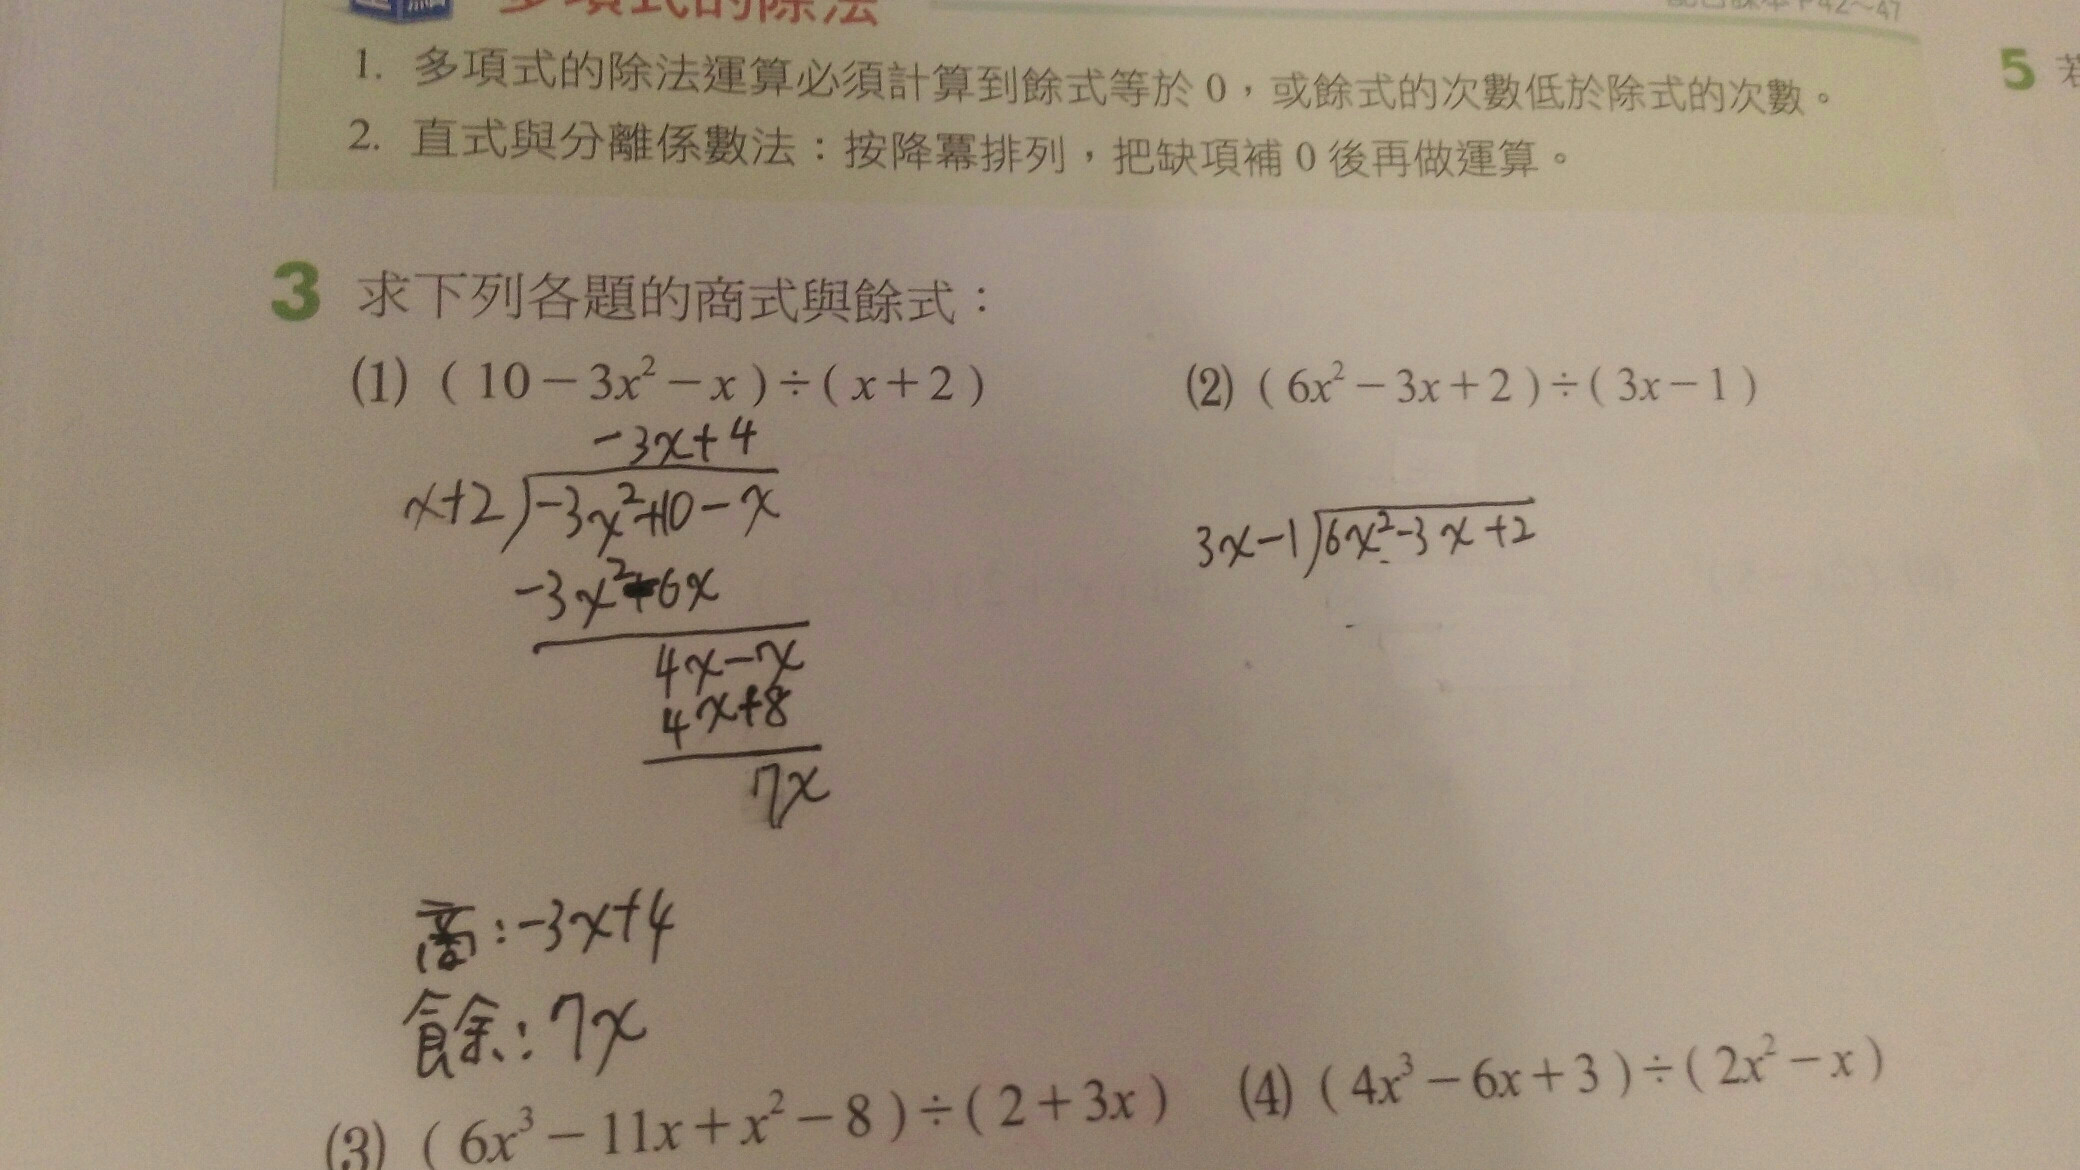 多項式的除法
1. 多項式的除法運算必須計算到餘式等於 0，或餘式的次數低於除式的次數。
2. 直式與分離係數法：按降冪排列，把缺項補 0 後再做運算。
5
3 求下列各題的商式與餘式：
(1) ( 10 − 3x² − x ) ÷ ( x + 2 )
-3x+4
x+2 ) -3x²+10-x
-3x²-6x
4x-x
4x+8
7x
商:-3x+4
餘:7x
(2) ( 6x² − 3x + 2 ) ÷ ( 3x − 1 )
3x-1 ) 6x²-3x+2
(3) ( 6x³ − 11x + x² − 8 ) ÷ ( 2 + 3x )
(4) ( 4x³ − 6x + 3 ) ÷ ( 2x² − x )